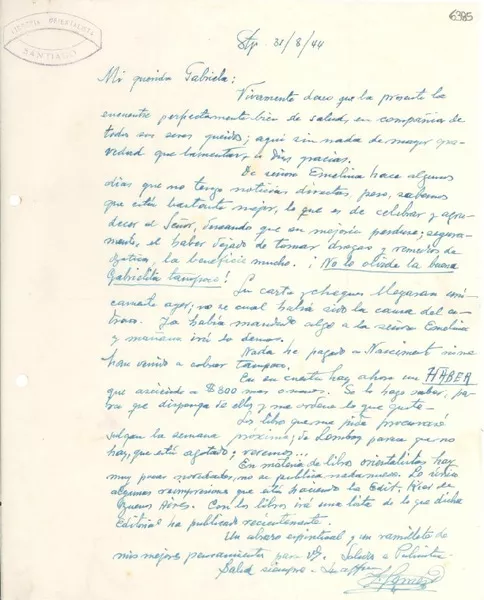 6385
LIBRERIA ORIENTALISTA
SANTIAGO
Stgo. 31/8/44
Mi querida Gabriela:
Vivamente deseo que la presente la
encuentre perfectamente bien de salud, en compañía de
todos sus seres queridos; aquí sin nada de mayor gra-
vedad que lamentar, a Dios gracias.
De señora Emelina hace algunos
días que no tengo noticias directas, pero, sabemos
que está bastante mejor, lo que es de celebrar y agra-
decer al Señor, deseando que su mejoría perdure; segura-
mente, el haber dejado de tomar drogas y remedios de
botica, la beneficie mucho. ¡No lo olvide la buena
Gabrielita tampoco!
Su carta y cheque llegaron úni-
camente ayer; no sé cual habrá sido la causa del a-
traso. Ya había mandado algo a la señora Emelina
y mañana irá lo demás.
Nada he pagado a Nascimento ni me
han venido a cobrar tampoco.
En su cuenta hay ahora un HABER
que asciende a $800 mas o menos. Se lo hago saber, pa-
ra que disponga de ellos y me ordene lo que guste.
Los libros que me pide procuraré
la semana próxima; de Lembos parece que no
hay, que está agotado; veremos...
En materia de libros orientalistas hay
muy pocas novedades, no se publica nada nuevo. Lo único
algunas reimpresiones que está haciendo la Edit. Kier de
Buenos Aires. Con los libros irá una lista de lo que dicha
Editorial ha publicado recientemente.
Un abrazo espiritual y un ramillete de
mis mejores pensamientos para Ud. Saludos a Palmita.
Salud siempre.